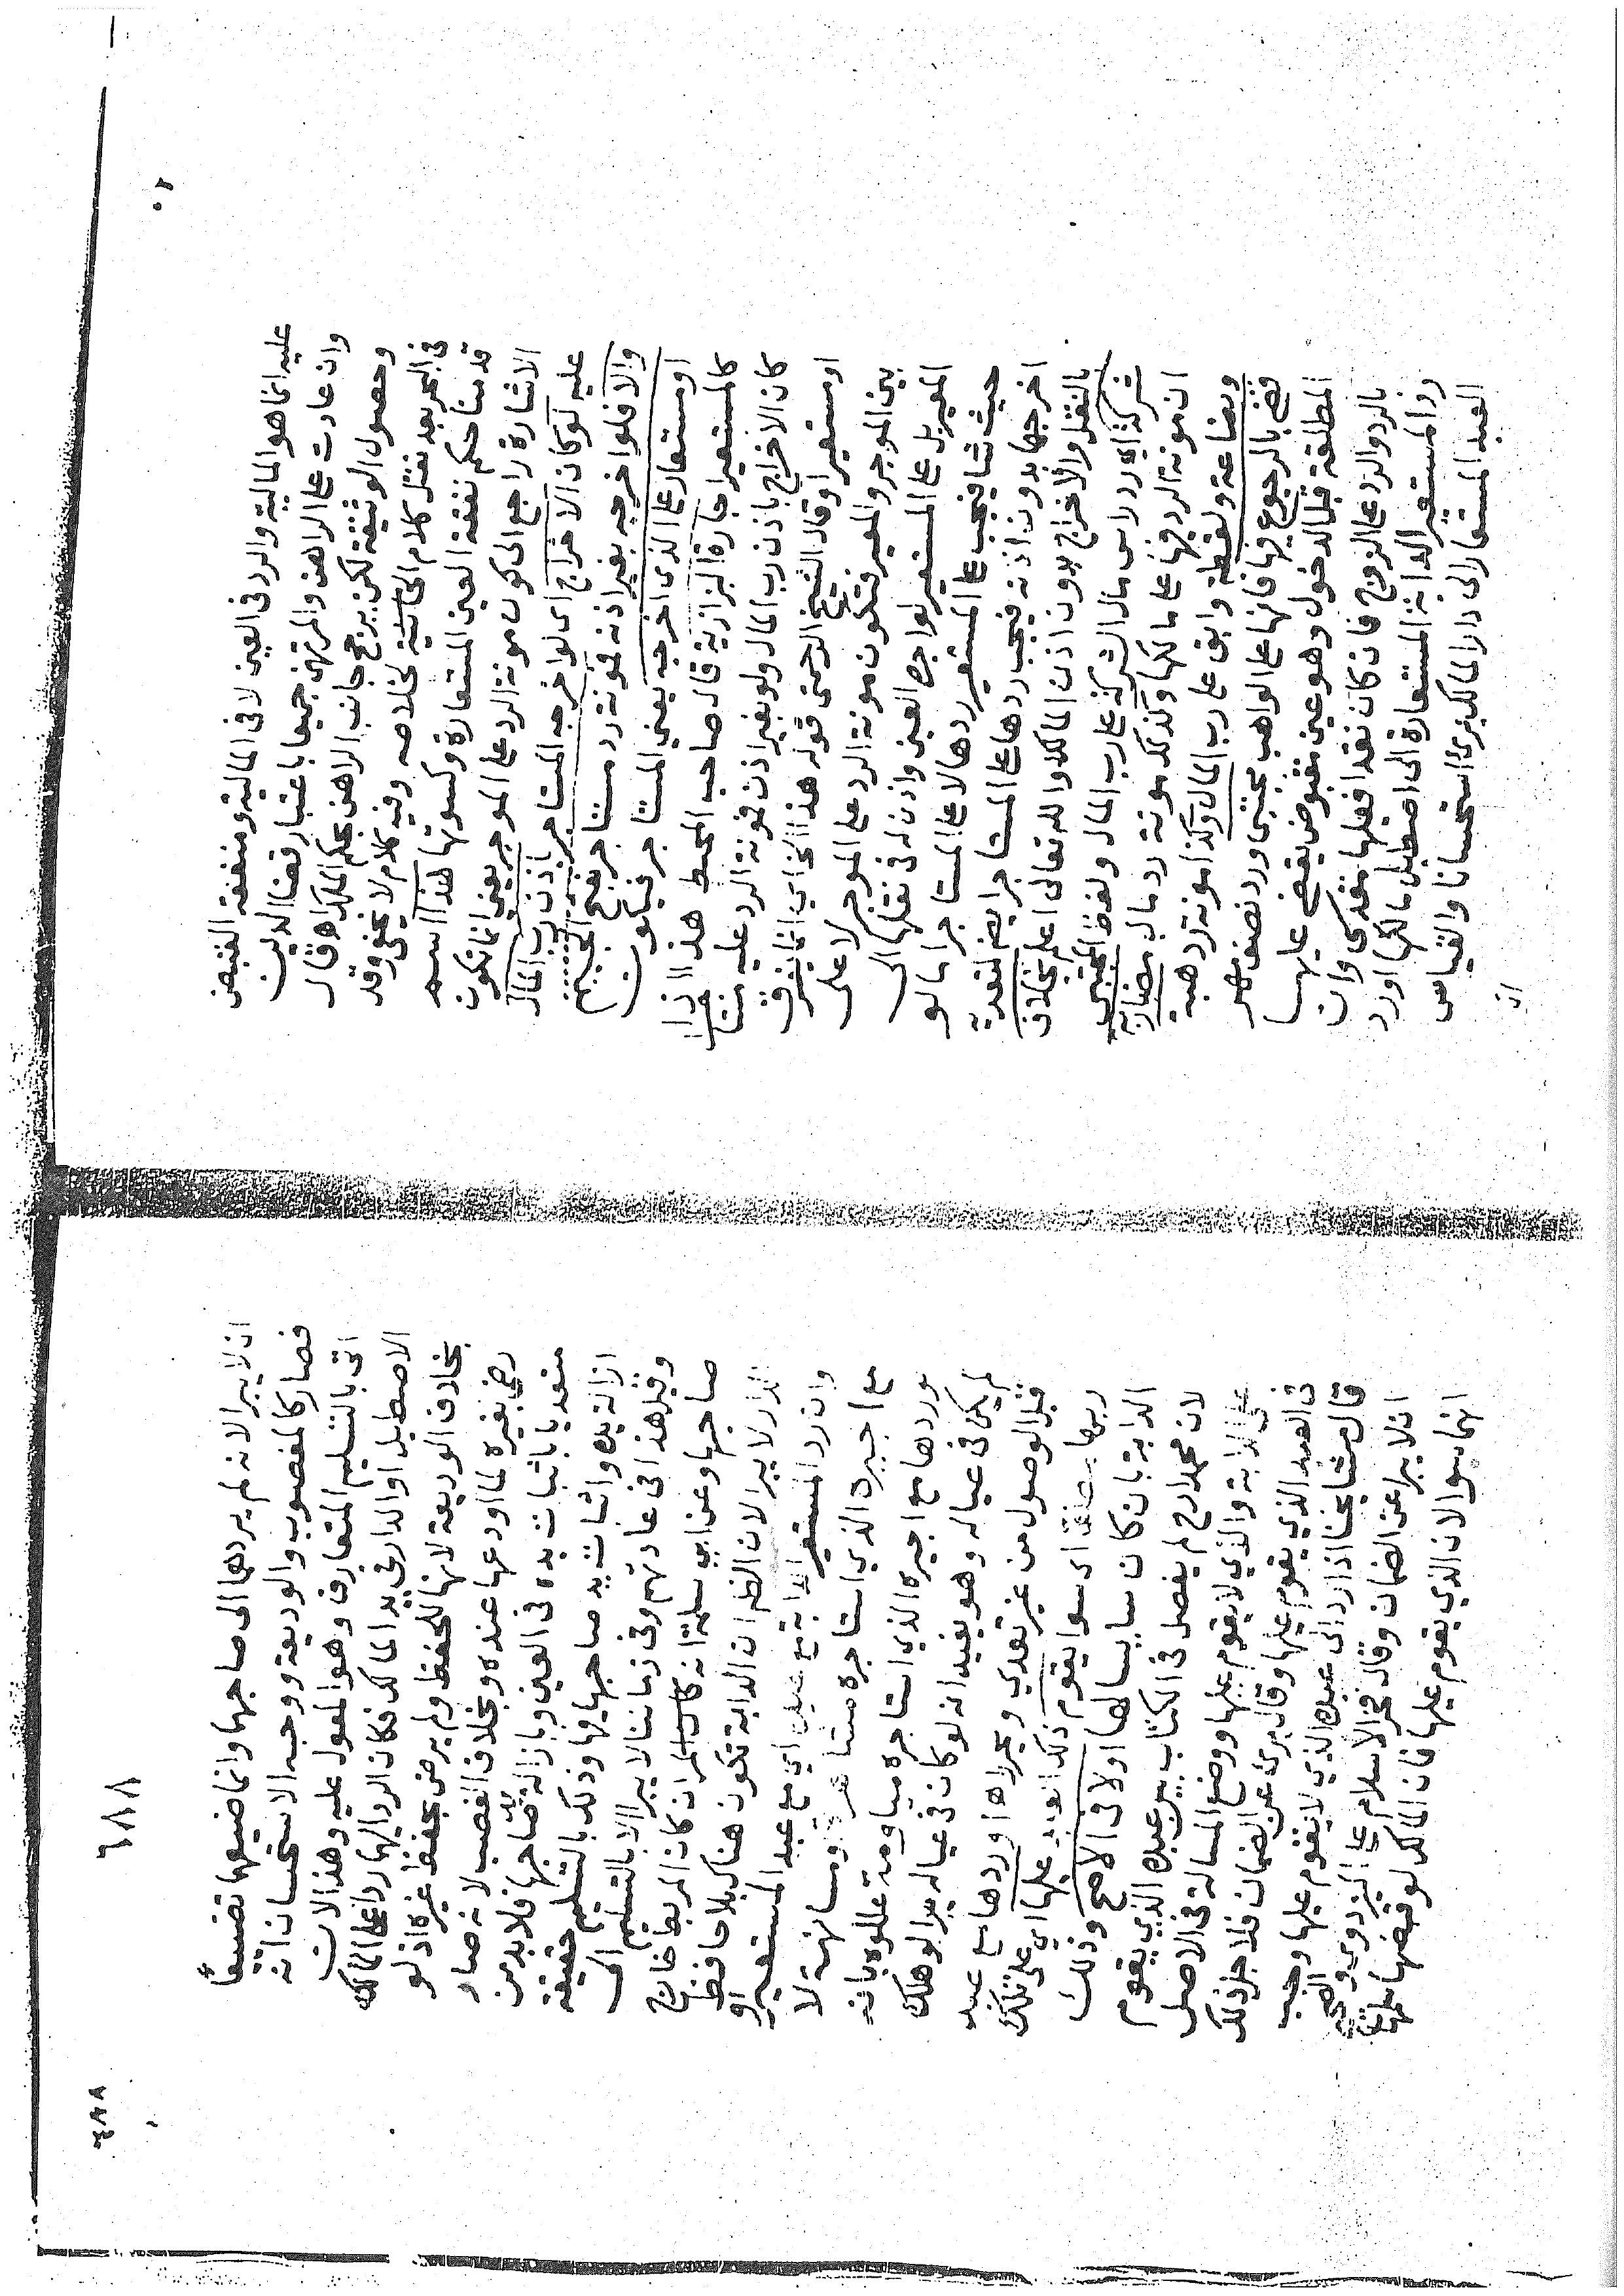 عليه انما هو المالية والرد في العين لا في المالية ومنفعة القبض
وان عادت على الراهن والمرتهن جميعا باعتبار قضا الدين
وحصول الوثيقة لكن يرجح جانب الاهن بحكم الملك اه قال
في البحر بعد نقل كلام الخانية بخلاصه وفيه كلام لا يخفى وقد
قدمنا حكم نفقة العين المستعارة وكسوتها هذا اسم
الاشارة راجع الى كون مونة الرد على الموجر يعني انما تكون
عليه لو كان الاخراج اي لو اخرجه المستاجر باذن رب المال
والا فلو اخرجه بغير اذنه فمونة رد مستاجر بفتح الجيم
او مستعار على الذي اخرجه يعني المستاجر فيكون
كالمستعير اجارة البزازية قال صاحب المحيط هذا اذا
كان الاخراج باذن رب المال ولو بغير اذن فمونة الرد عليه
او مستعيرا وقال الشيخ الرحمتي قوله هذا الخ اي انما يفرق
بين الموجر والمعير فتكون مونة الرد على الموجر لا على
المعير بل على المستعير لو اخرج العين واذن له في نقلها الى
حيث شا فيجب على المستعير ردها لا على المستاجر اما لو
اخرجها بدون اذنه فيجب ردها على المستاجر ايضا لتعديه
بالنقل والاخراج بدون اذن المالك والله تعالى اعلم بخلاف
شركة اي رد راس مال الشركة على رب المال ولفظ المجتبى
ان مونة الرد فيها على مالكها وكذلك مونة رد مال مضاربة
وبضاعة ولقطة وابق على رب المال وكذا مونة رد هبة
قضى بالرجوع فيها فانها على الواهب مجتبى ورد نصف مهر
المطلقة قبل الدخول وهو عين مقبوض يقضى عليها
بالرد والرد على الزوج فان كان نقدا فعليها وان
رد المستعير الدابة المستعارة الى اصطبل مالكها او رد
العبد المستعار الى دار المالك برئ استحسانا والقياس
ان
٦٨٨
٦٨٨
ان لا يبرا لانه لم يردهما الى صاحبها وانما ضيعها تضييعا
فصار كالمغصوب والوديعة ووجه الاستحسان انه
اتى بالتسليم المتعارف وهو المعول عليه وهذا لان
الاصطبل او الدار في يد المالك فكان الرد اليهما ردا على المالك
بخلاف الوديعة لانها للحفظ ولم يرض بحفظ غيره اذ لو
رضي بغيره لما اودعها عنده وبخلاف الغصب لانه صار
متعديا باثبات يده في العين وبازالة يد صاحبها فلا بد من
ازالة يده واثبات يد صاحبها فيها وذلك بالتسليم حقيقة
وقيل هذا في عادتهم وفي زماننا لا يبرا الا بالتسليم الى
صاحبها وعن ابي سلمة انه كان المران كان المربط خارج
الدار لا يبرا لان الظاهر ان الدابة تكون هناك بلا حافظ
وان رد المستعير الدابة مع عبده اي مع عبد المستعير او
مع اجيره الذي استاجره مشاهرة ومسانهة لا
لو ردها مع اجيره الذي استاجره مياومة عللوه بانه
لم يكن في عياله وهو يفيد انه لو كان في عياله يبرا لو هلك
قبل الوصول من غير تعدي ويجراها او ردها مع عبد
ربها مطلقا اي سوا يقوم ذلك العبد عليها اي على تلك
الدابة بان كان سايسا لها او لا في الاصح وذلك
لان محمدا رح لم يفصل في الكتاب بين عبده الذي يقوم
على الدابة والذي لا يقوم عليها ووضع المسالة في الاصل
في العبد الذي يقوم عليها وقال برئ عن الضمان فلاجل ذلك
قال مشايخنا اذا رد الى عبده الذي لا يقوم عليها وجب
ان لا يبرا عن الضمان وقال فخر الاسلام علي البزدوي والصحيح
انهما سوا لان الذي يقوم عليها فان المالك لو قبضها